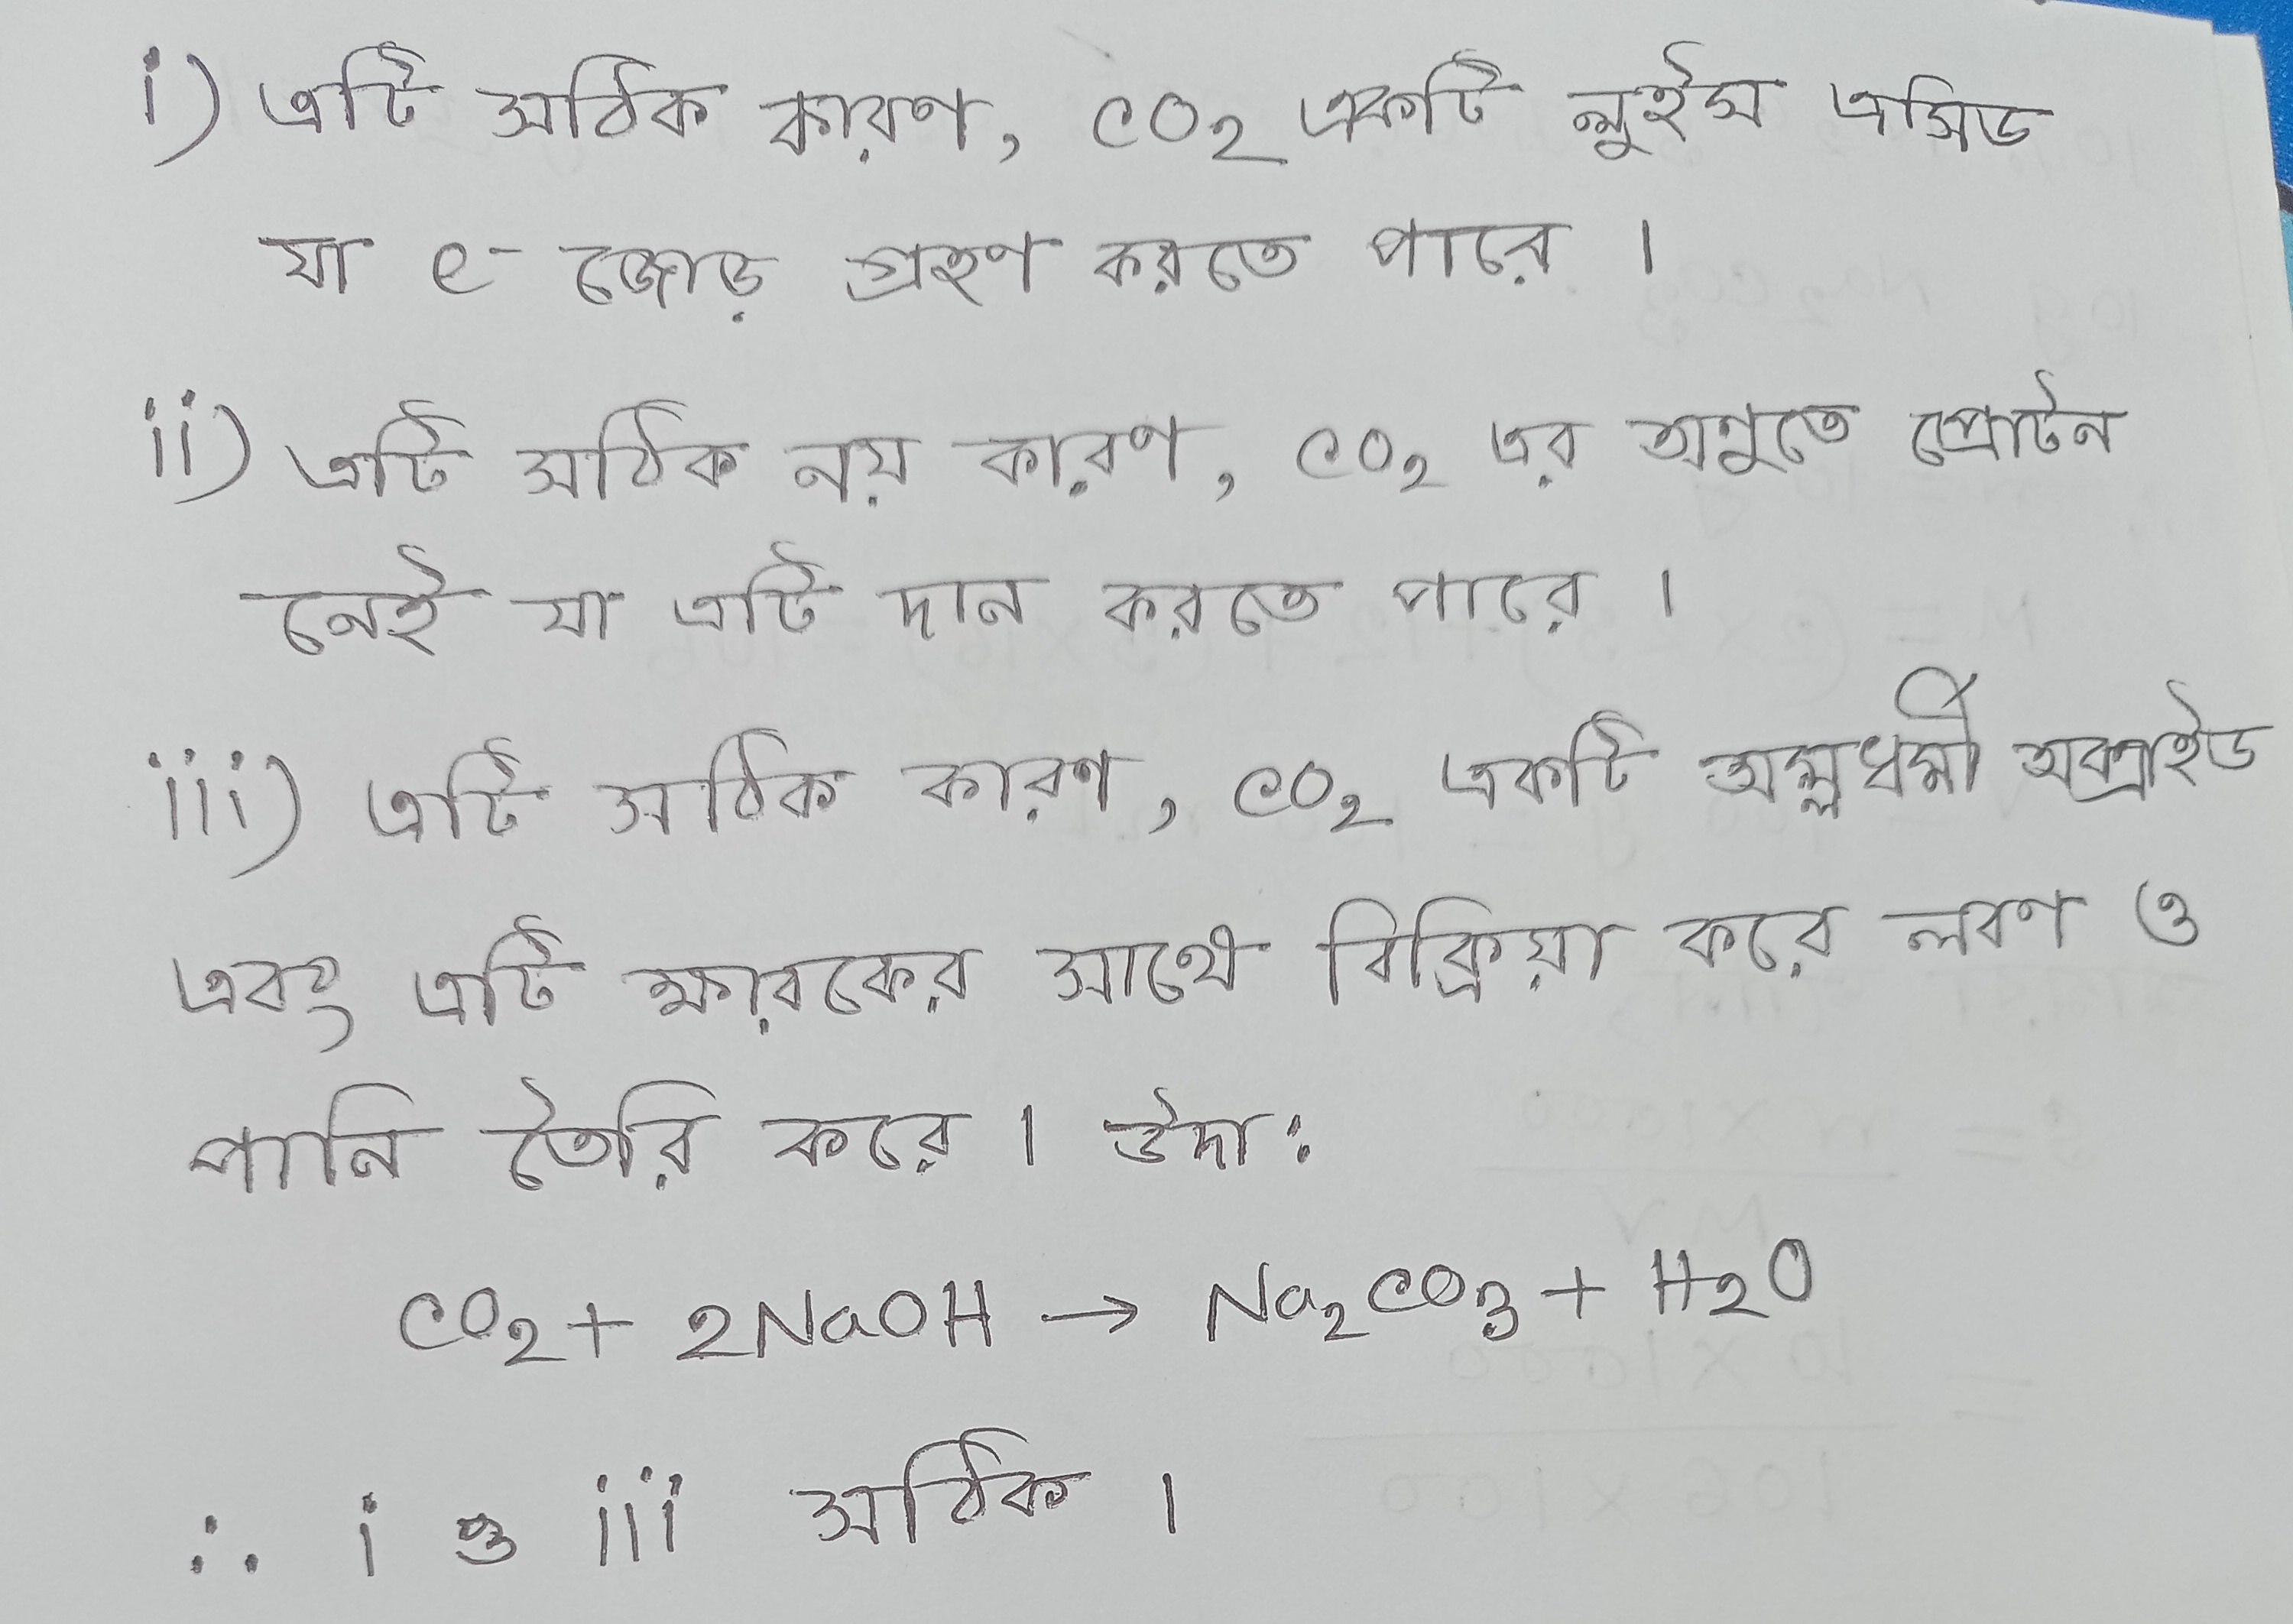 i) এটি সঠিক কারণ, CO₂ একটি লুইস এসিড
যা e⁻ জোড় গ্রহণ করতে পারে ।
ii) এটি সঠিক নয় কারণ, CO₂ এর অণুতে প্রোটন
নেই যা এটি দান করতে পারে ।
iii) এটি সঠিক কারণ, CO₂ একটি অম্লধর্মী অক্সাইড
এবং এটি ক্ষারকের সাথে বিক্রিয়া করে লবণ ও
পানি তৈরি করে । উদা:
CO₂ + 2NaOH → Na₂CO₃ + H₂O
∴ i ও iii সঠিক ।